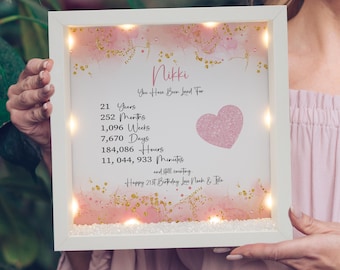 Nikki
You Have Been Loved For
21 Years
252 Months
1,096 Weeks
7,670 Days
184,086 Hours
11, 044, 933 Minutes
and still counting
Happy 21st Birthday Love Nank &